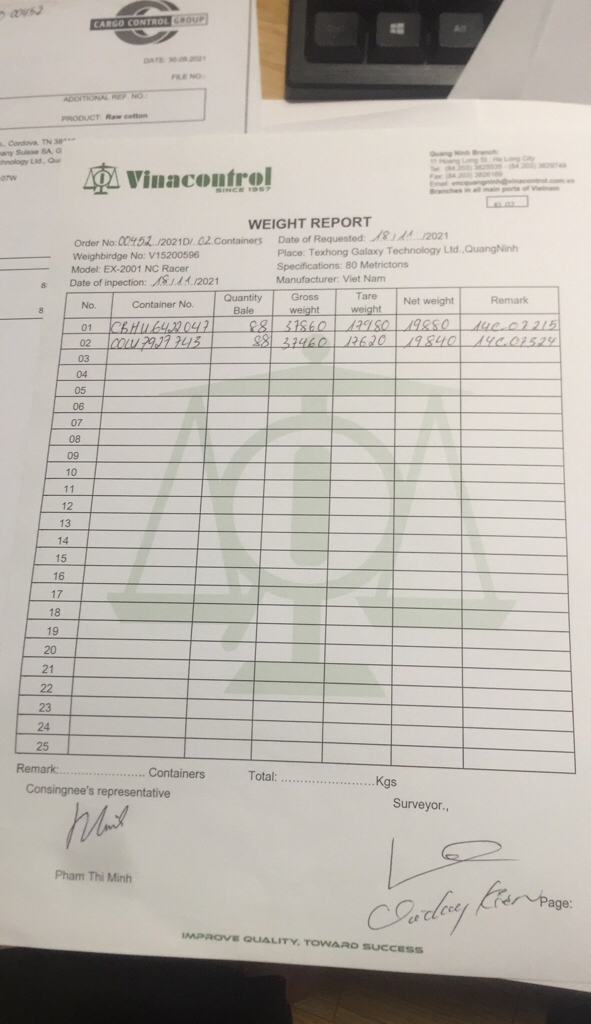 00452
CARGO CONTROL GROUP
DATE: 30.09.2021
FILE NO.:
ADDITIONAL REF. NO.:
PRODUCT: Raw cotton
Cordova, TN
any Suisse SA, G
hnology Ltd., Qua
07W
8
8
Vinacontrol
SINCE 1957
Quang Ninh Branch:
11 Hoang Long St., Ha Long City
Branches in all main ports of Vietnam
WEIGHT REPORT
Order No: 00452 /2021D/ 02 Containers Date of Requested: 18 / 11 /2021
Weighbirdge No: V15200596 Place: Texhong Galaxy Technology Ltd.,QuangNinh
Model: EX-2001 NC Racer Specifications: 80 Metrictons
Date of inpection: 18 / 11 /2021 Manufacturer: Viet Nam
No. Container No. Quantity Bale Gross weight Tare weight Net weight Remark
01 CBHU6422047 88 37860 17980 19880 14C.07215
02 88 37460 17620 19840 14C.07524
03
04
05
06
07
08
09
10
11
12
13
14
15
16
17
18
19
20
21
22
23
24
25
Remark:........................ Containers Total: ........................Kgs
Consingnee's representative Surveyor.,
Pham Thi Minh
Page:
IMPROVE QUALITY, TOWARD SUCCESS